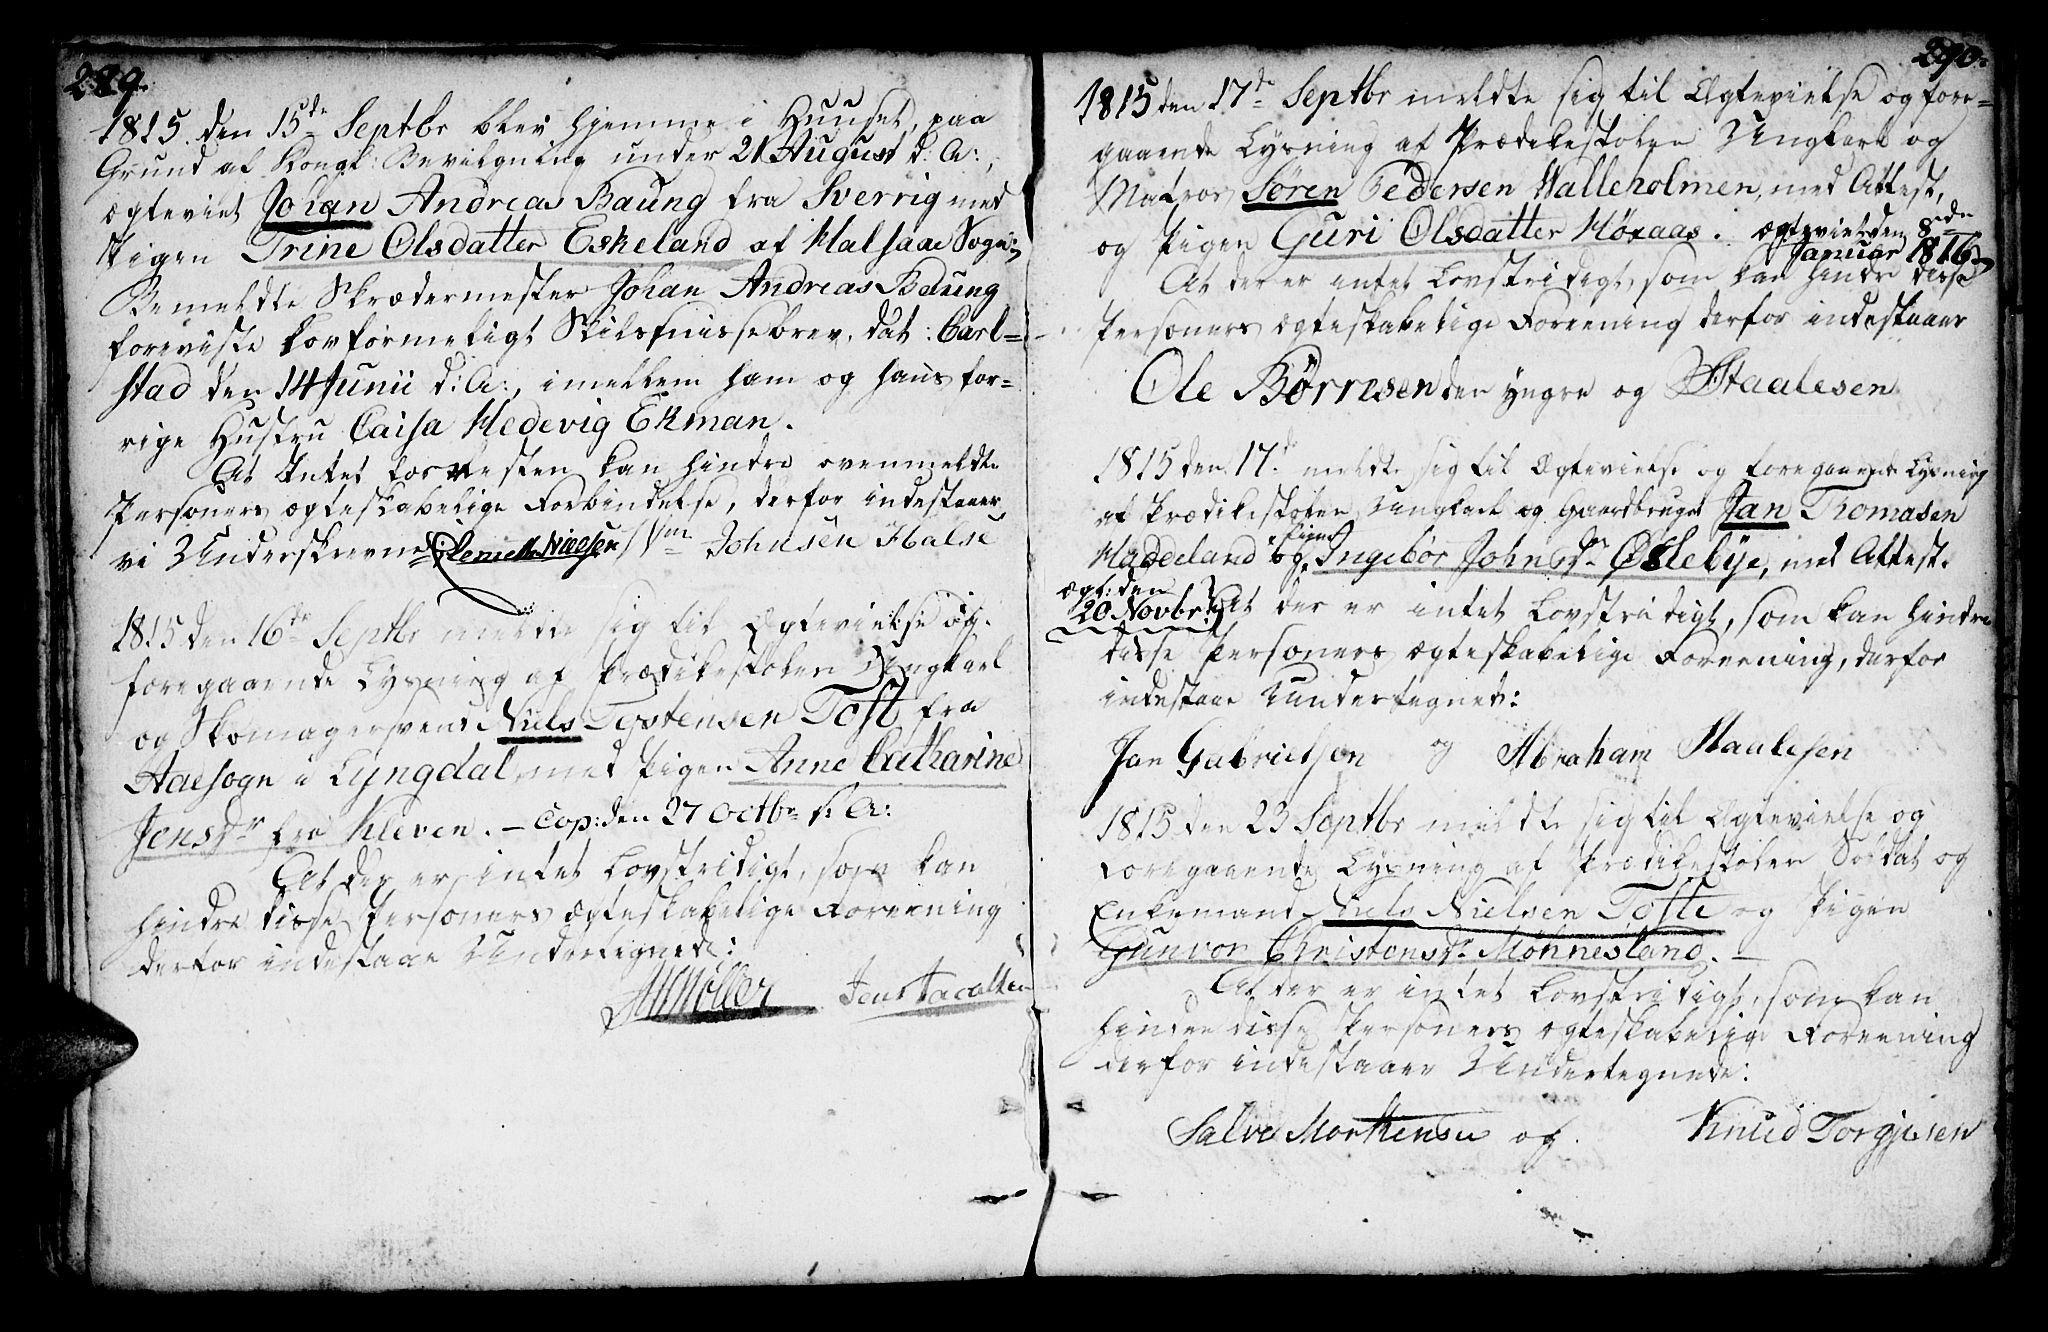 289.
1815. den 15de Septbr blev hjemme i Huuset, paa
Grund af Kongl: Bevilgning under 21 August d: A:,
ægteviet Johan Andreas Baung fra Sverrig med
Pigen Trine Olsdatter Eskeland af Halsaae Sogn;
Bemeldte Skrædermester Johan Andreas Baung
foreviste lovformeligt Skilsmissebrev, dat: Carl=
stad den 14 Junii d: A:, imellem ham og hans for=
rige Hustru Caisa Hedevig Ekman.
At Intet lovfæsten kan hindre ovenmeldte
Personers ægteskabelige Forbindelse, derfor indestaaer
vi Underskrevne Nielsen Johnsen Halse
1815 den 16de Septbr meldte sig til Ægtevielse og
foregaaende Lysning af Prædikestolen Ungkarl
og Skomagersvend Niels Tostensen Toft fra
Aaesogn i Lyngdal med Pigen Anne Catharine
Jensdr fra Kleven. – Cop: den 27 Octbr s: A:
At der er intet Lovstridigt, som kan
hindre disse Personers Ægteskabelige Foreening
derfor indestaae Undertegnede:
Møller Jens Jacobsen
290.
1815 den 17de Septbr meldte sig til Ægtevielse og fore=
gaaende Lysning af Prædikestolen Ungkarl og
Matros Søren Pedersen Valleholmen, med Attest,
og Pigen Guri Olsdatter Høxaas. ægteviet den 8de
Januar 1816
At der er intet Lovstridigt, som kan hindre disse
Personers ægteskabelige Foreening derfor indestaaer
Ole Børresen den yngre og Staalesen
1815 den 17d meldte sig til Ægtevielse og foregaaende Lysning
af Prædikestolen Ungkarl og Gaardbruger Jan Thomasen
Hadeeland og Pigen Ingebor Johnsdr Øslebye, med Attest.
ægt: den
20 Novbr: At der er intet Lovstridigt, som kan hindre
disse Personers ægteskabelige Foreening, derfor
indestaae Undertegnede:
Jan Gabrielsen og Abraham Staalesen
1815 den 23 Septbr meldte sig til Ægtevielse og
foregaaende Lysning af Prædikestolen Soldat og
Enkemand Niels Nielsen Tofte og Pigen
Gunvor Christensdr Møhnesland. –
At der er intet Lovstridigt, som kan
hindre disse Personers ægteskabelige Foreening
derfor indestaaer Undertegnede:
Salve Morthensen og Knud Torgjusen